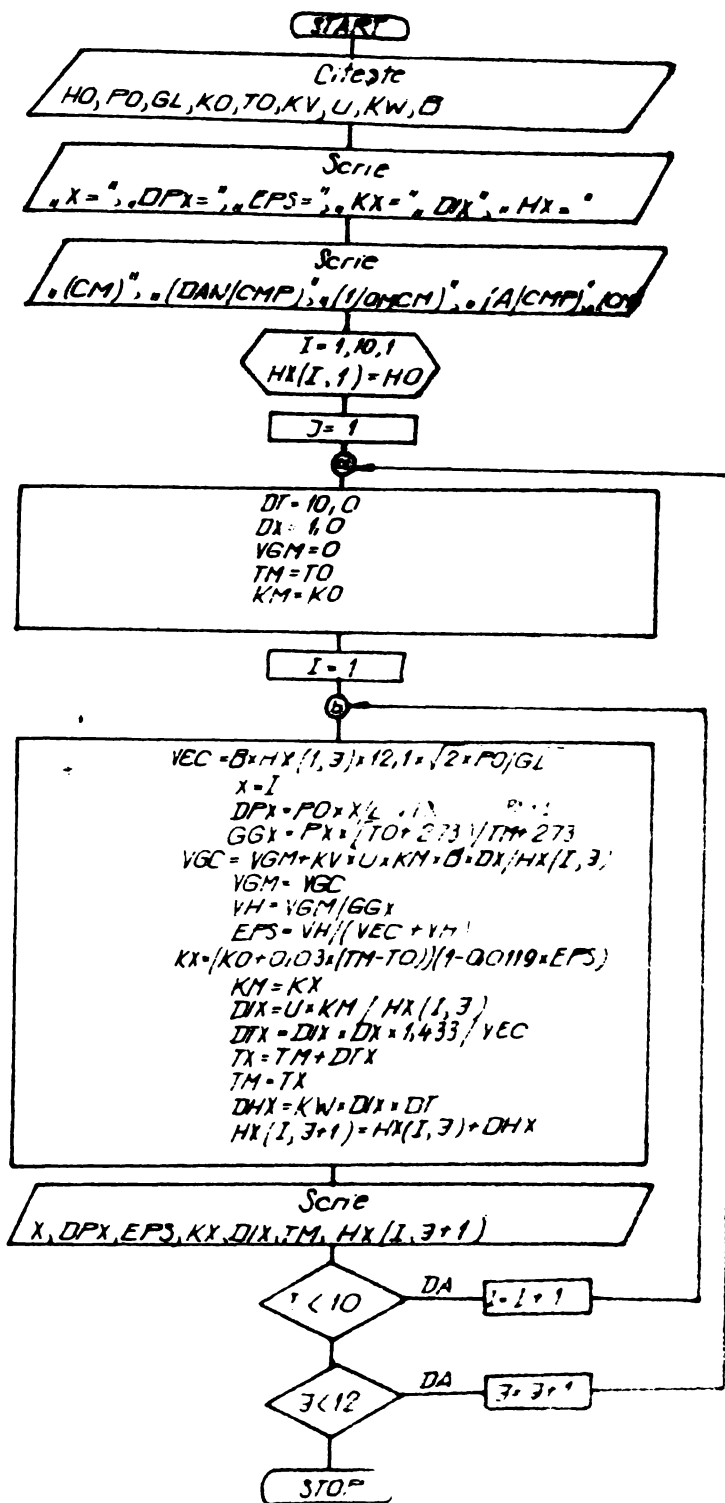 START
Citește
HO, PO, GL, KO, TO, KV, U, KW, B
Scrie
„X = ", „DPX = ", „EPS = ", „KX = ", „DIX", „HX = "
Scrie
„(CM)", „(DAN/CMP)", „(1/OMCM)", „(A/CMP)", „(CM)
I = 1,10,1
HX(I,1) = HO
J = 1
a
DT = 10,0
DX = 1,0
VGM = 0
TM = TO
KM = KO
I = 1
b
VEC = B×HX(1,J)×12,1×√2×PO/GL
X = I
DPX = PO×X/
GGX = PX×(TO+273)/TM+273
VGC = VGM+KV×U×KM×B×DX/HX(I,J)
VGM = VGC
VH = VGM/GGX
EPS = VH/(VEC+VH)
KX=(KO+0,03×(TM-TO))(1-0,0119×EPS)
KM = KX
DIX = U×KM/HX(I,J)
DTX = DIX×DX×1,433/VEC
TX = TM+DTX
TM = TX
DHX = KW×DIX×DT
HX(I,J+1) = HX(I,J)+DHX
Scrie
X, DPX, EPS, KX, DIX, TM, HX(I,J+1)
I < 10
DA
I = I + 1
J < 12
DA
J = J + 1
STOP